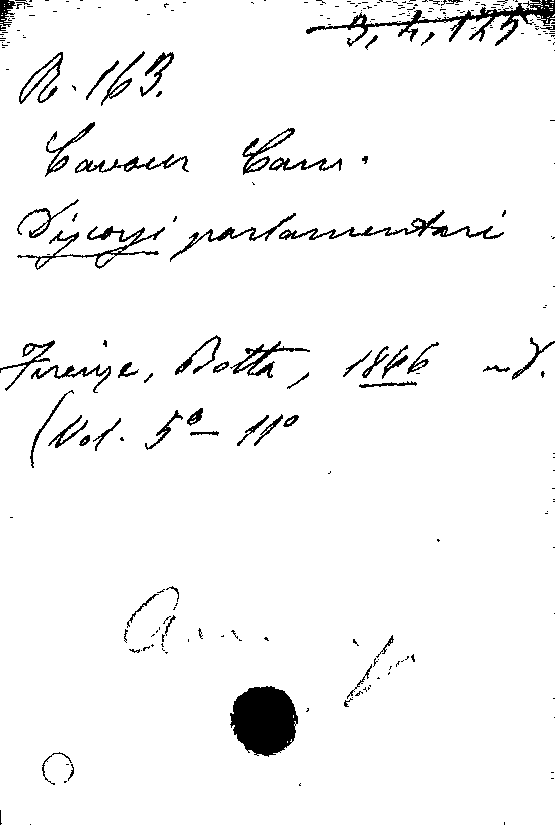 3, 2, 125
R. 163.
Cavour Cam.
Discorsi parlamentari
Firenze, Botta, 1866 in 8.
(Vol. 5º - 11º